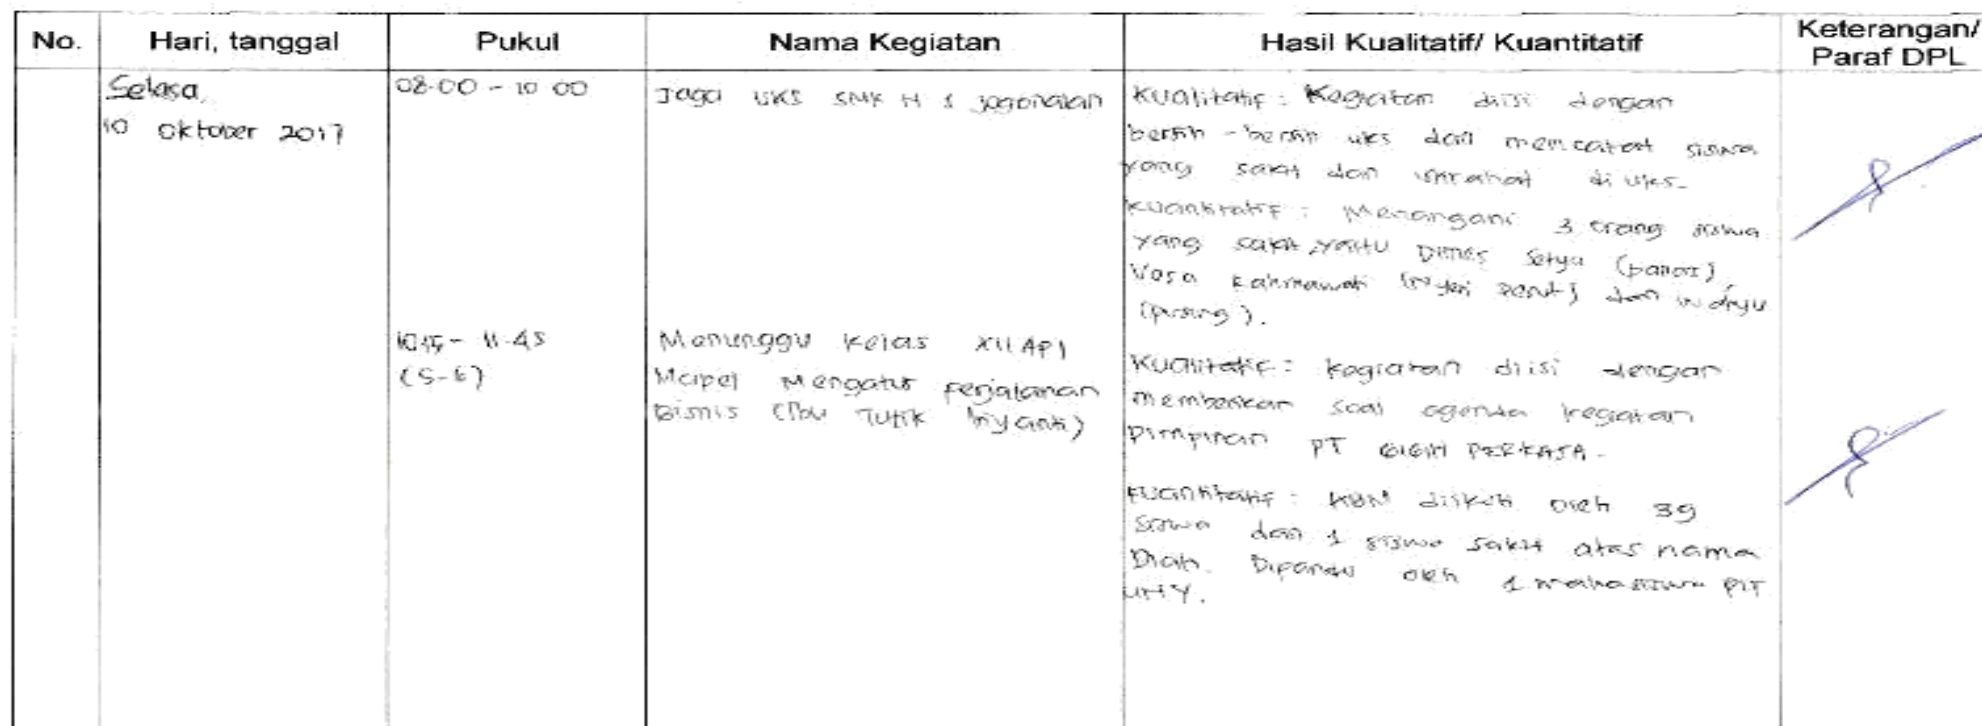 No. Hari, tanggal Pukul Nama Kegiatan Hasil Kualitatif/ Kuantitatif Keterangan/
Paraf DPL
Selasa,
10 Oktober 2017
08.00 - 10 00
Jaga UKS SMK N 1 Jogonalan
Kualitatif : Kegiatan diisi dengan
bersih - bersih uks dan mencatat siswa
yang sakit dan istirahat di uks.
Kuantitatif : Menangani 3 orang siswa
yang sakit, yaitu Dimas Setya (panas),
Vosa Rahmawati (nyeri perut) dan
(pusing).
10.15 - 11.45
(5-6)
Menunggu kelas XII AP 1
Mapel Mengatur perjalanan
Bisnis (Ibu Tutik
Kualitatif : kegiatan diisi dengan
memberikan soal agenda kegiatan
pimpinan PT GIGIH PERKASA.
Kuantitatif : KBM diikuti oleh 39
siswa dan 1 siswa sakit atas nama
Diah. Dipandu oleh 1 mahasiswa